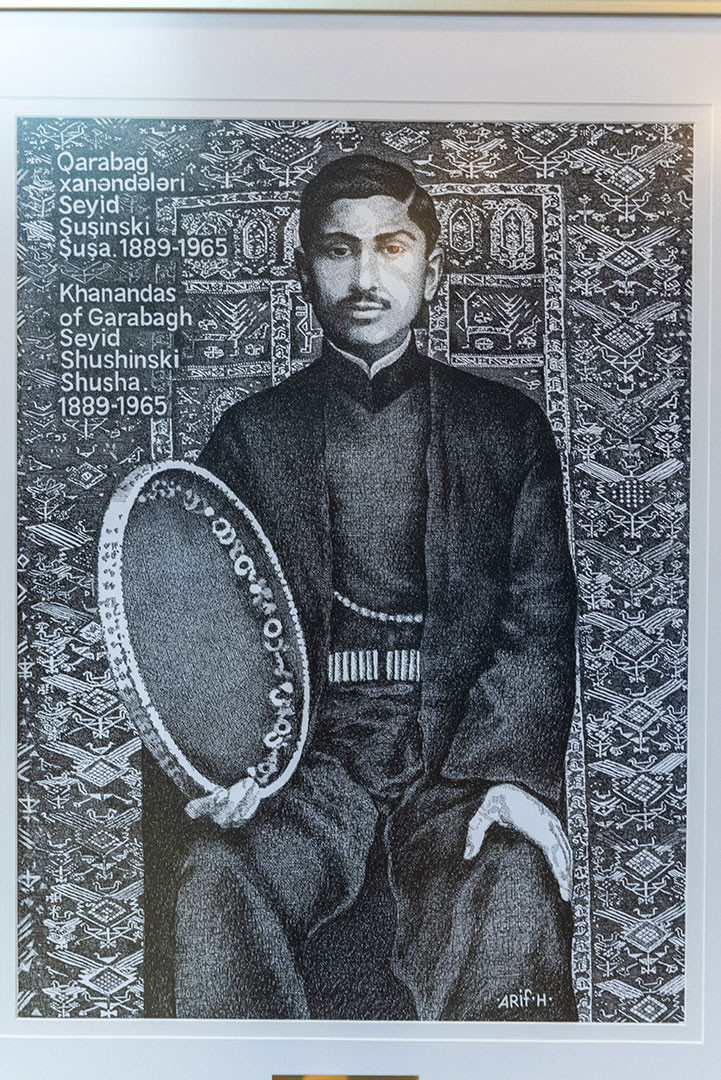 Qarabağ
xanəndələri
Seyid
Şuşinski
Şuşa. 1889-1965
Khanandas
of Garabagh
Seyid
Shushinski
Shusha.
1889-1965
ARif·H·